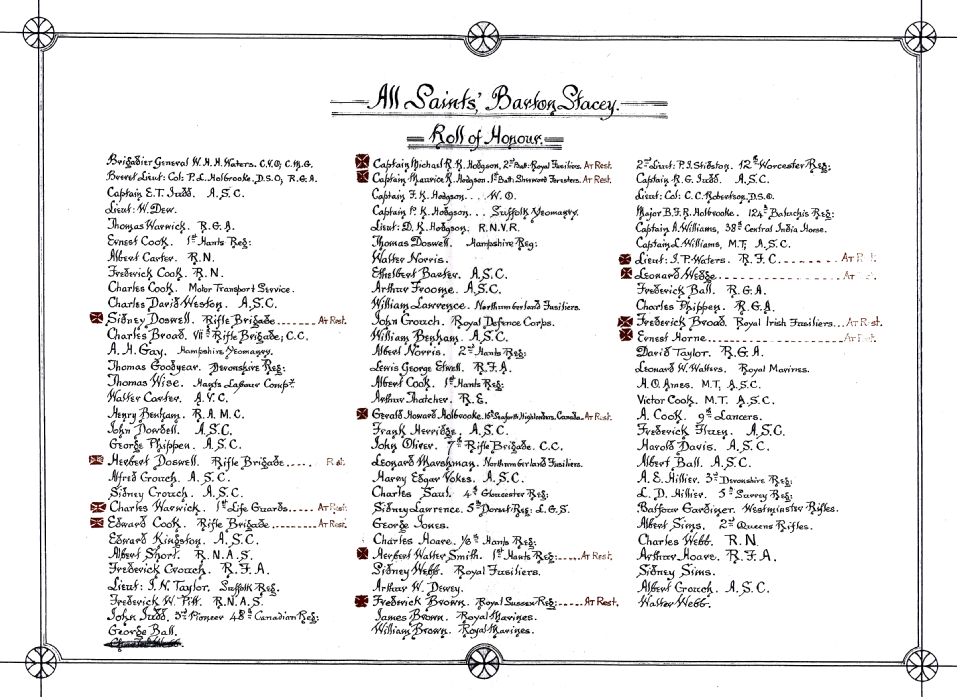 All Saints', Barton Stacey.
Roll of Honour.
Brigadier General W. H. H. Waters. C.V.O; C.M.G.
Brevet Lieut: Col: P. L. Holbrooke, D.S.O; R.G.A.
Captain E. T. Judd. A.S.C.
Lieut: W. Dew.
Thomas Warwick. R.G.A.
Ernest Cook. 1st Hants Reg:
Albert Carter. R.N.
Frederick Cook. R.N.
Charles Cook. Motor Transport Service.
Charles David Weston. A.S.C.
Sidney Doswell. Rifle Brigade....... At Rest.
Charles Broad. VIIth Rifle Brigade; C.C.
A. H. Gay. Hampshire Yeomanry.
Thomas Goodyear. Devonshire Reg:
Thomas Wise. Hants Labour Compy.
Walter Carter. A.V.C.
Henry Benham. R.A.M.C.
John Dowdell. A.S.C.
George Phippen. A.S.C.
Herbert Doswell. Rifle Brigade.... Rest.
Alfred Crouch. A.S.C.
Sidney Crouch. A.S.C.
Charles Warwick. 1st Life Guards.... At Rest.
Edward Cook. Rifle Brigade......... At Rest.
Edward Kingston. A.S.C.
Albert Short. R.N.A.S.
Frederick Crouch. R.F.A.
Lieut: J. N. Taylor. Suffolk Reg.
Frederick W. Pitt. R.N.A.S.
John Judd. 3rd Pioneer 48th Canadian Reg:
George Ball.
Captain Michael R. K. Hodgson, 2nd Batt: Royal Fusiliers. At Rest.
Captain Maurice K. Hodgson. 1st Batt: Sherwood Foresters. At Rest.
Captain F. K. Hodgson... W.O.
Captain P. K. Hodgson... Suffolk Yeomanry.
Lieut: D. K. Hodgson. R.N.V.R.
Thomas Doswell. Hampshire Reg:
Walter Norris.
Ethelbert Baxter. A.S.C.
Arthur Froome. A.S.C.
William Lawrence. Northumberland Fusiliers.
John Crouch. Royal Defence Corps.
William Benham. A.S.C.
Albert Norris. 2nd Hants Reg:
Lewis George Elwell. R.F.A.
Albert Cook. 1st Hants Reg:
Arthur Thatcher. R.E.
Gerald Howard Holbrooke. 16th Seaforth Highlanders. Canada. At Rest.
Frank Herridge. A.S.C.
John Oliver. 7th Rifle Brigade. C.C.
Leonard Marshman. Northumberland Fusiliers.
Harry Edgar Vokes. A.S.C.
Charles Saul. 4th Gloucester Reg:
Sidney Lawrence. 5th Dorset Reg: L.G.S.
George Jones.
Charles Hoare. 1/6th Hants Reg:
Herbert Walter Smith. 1st Hants Reg:..... At Rest.
Sidney Webb. Royal Fusiliers.
Arthur W. Dewey.
Frederick Brown. Royal Sussex Reg:..... At Rest.
James Brown. Royal Marines.
William Brown. Royal Marines.
2nd Lieut: P. J. Stidston. 12th Worcester Reg:
Captain R. G. Judd. A.S.C.
Lieut: Col: C. C. Robertson, D.S.O.
Major B. F. R. Holbrooke. 124th Baluchis Reg:
Captain A. Williams, 38th Central India Horse.
Captain L. Williams, M.T, A.S.C.
Lieut: J. P. Waters. R.F.C......... At Rest.
Leonard Wedge................ At
Frederick Ball. R.G.A.
Charles Phippen. R.G.A.
Frederick Broad. Royal Irish Fusiliers... At Rest.
Ernest Horne................ At Rest.
David Taylor. R.G.A.
Leonard W. Watters. Royal Marines.
H. O. Ames. M.T, A.S.C.
Victor Cook. M.T. A.S.C.
A. Cook. 9th Lancers.
Frederick A.S.C.
Harold Davis. A.S.C.
Albert Ball. A.S.C.
A. E. Hillier. 3rd Devonshire Reg:
L. D. Hillier. 5th Surrey Reg:
Balfour Gardiner. Westminster Rifles.
Albert Sims. 2nd Queens Rifles.
Charles Webb. R.N.
Arthur Hoare. R.F.A.
Sidney Sims.
Albert Crouch. A.S.C.
Walter Webb.